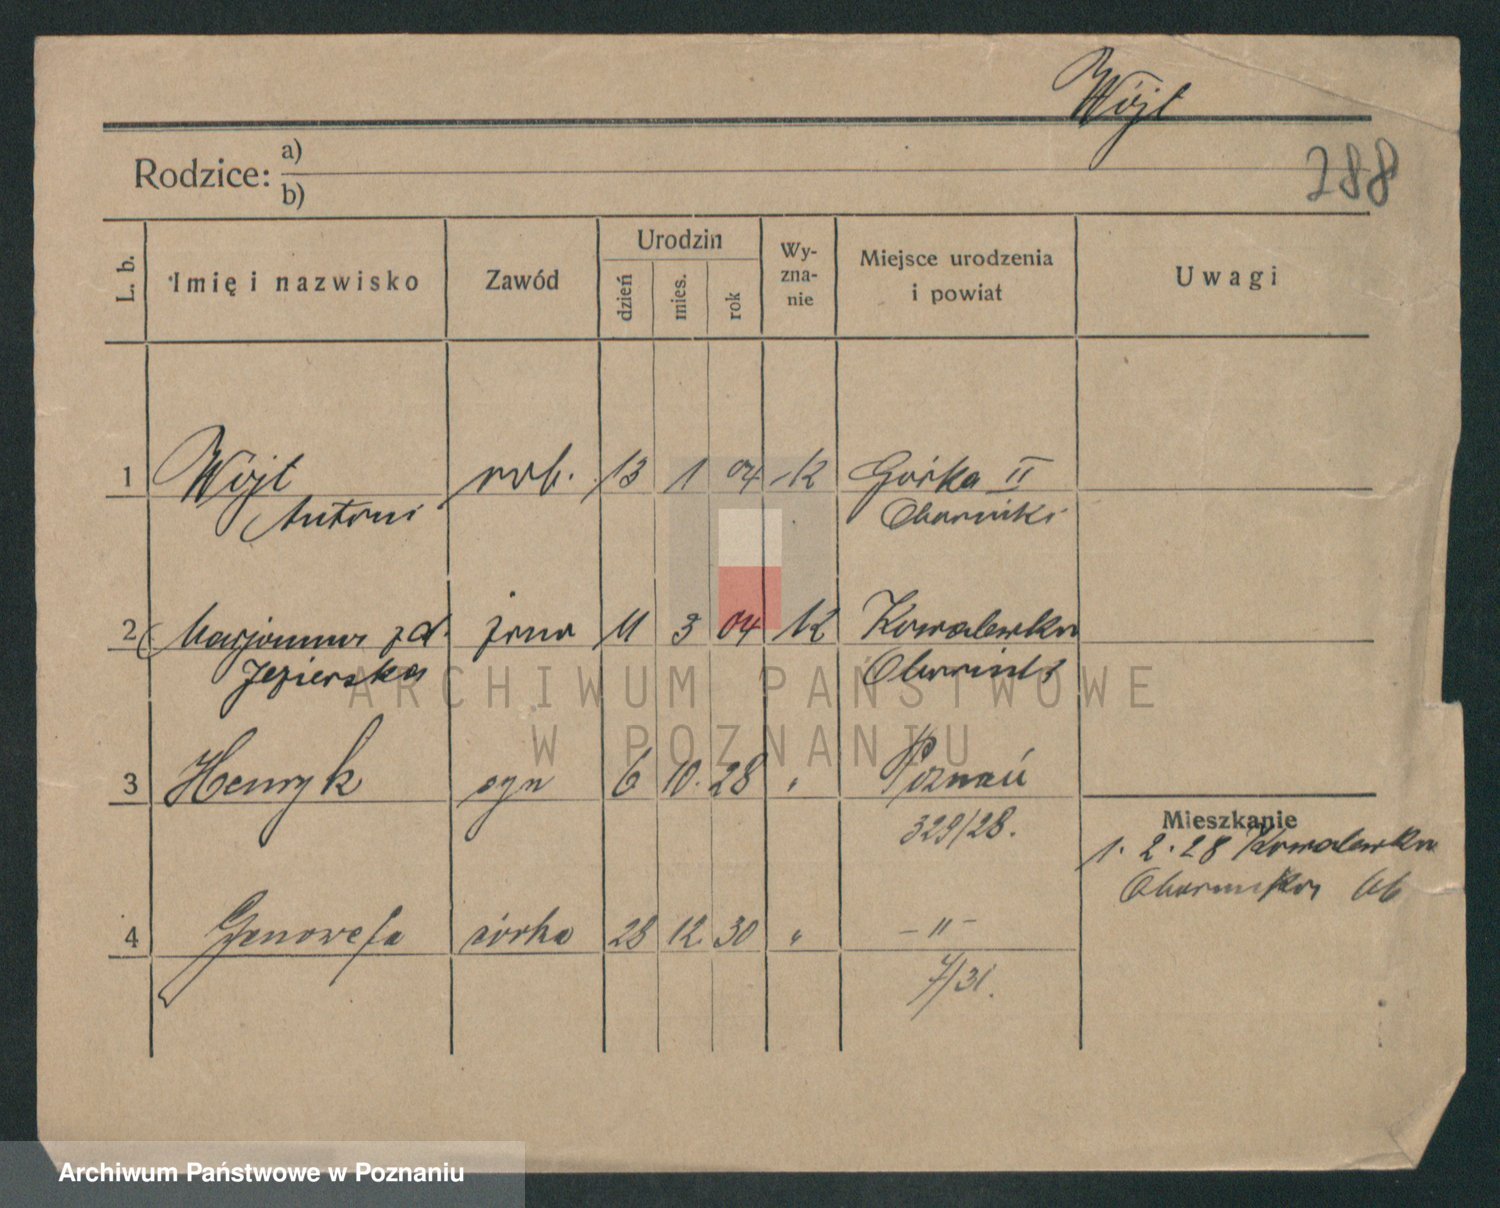 Wójt
288
Rodzice: a)
b)
L. b.
Imię i nazwisko
Zawód
Urodzin
dzień
mies.
rok
Wy-
zna-
nie
Miejsce urodzenia
i powiat
Uwagi
1 Wójt rob. 13 1 04 K Górka II
Antoni Oborniki
2 Marjanna zd. żona 11 3 04 K Kowalewko
Jezierska Oborniki
3 Henryk syn 6 10. 28 " Poznań
329/28.
Mieszkanie
1. 2. 28 Kowalewko
4 Genowefa córka 28 12. 30 " – " –
7/31.
ARCHIWUM PAŃSTWOWE
W POZNANIU
Archiwum Państwowe w Poznaniu